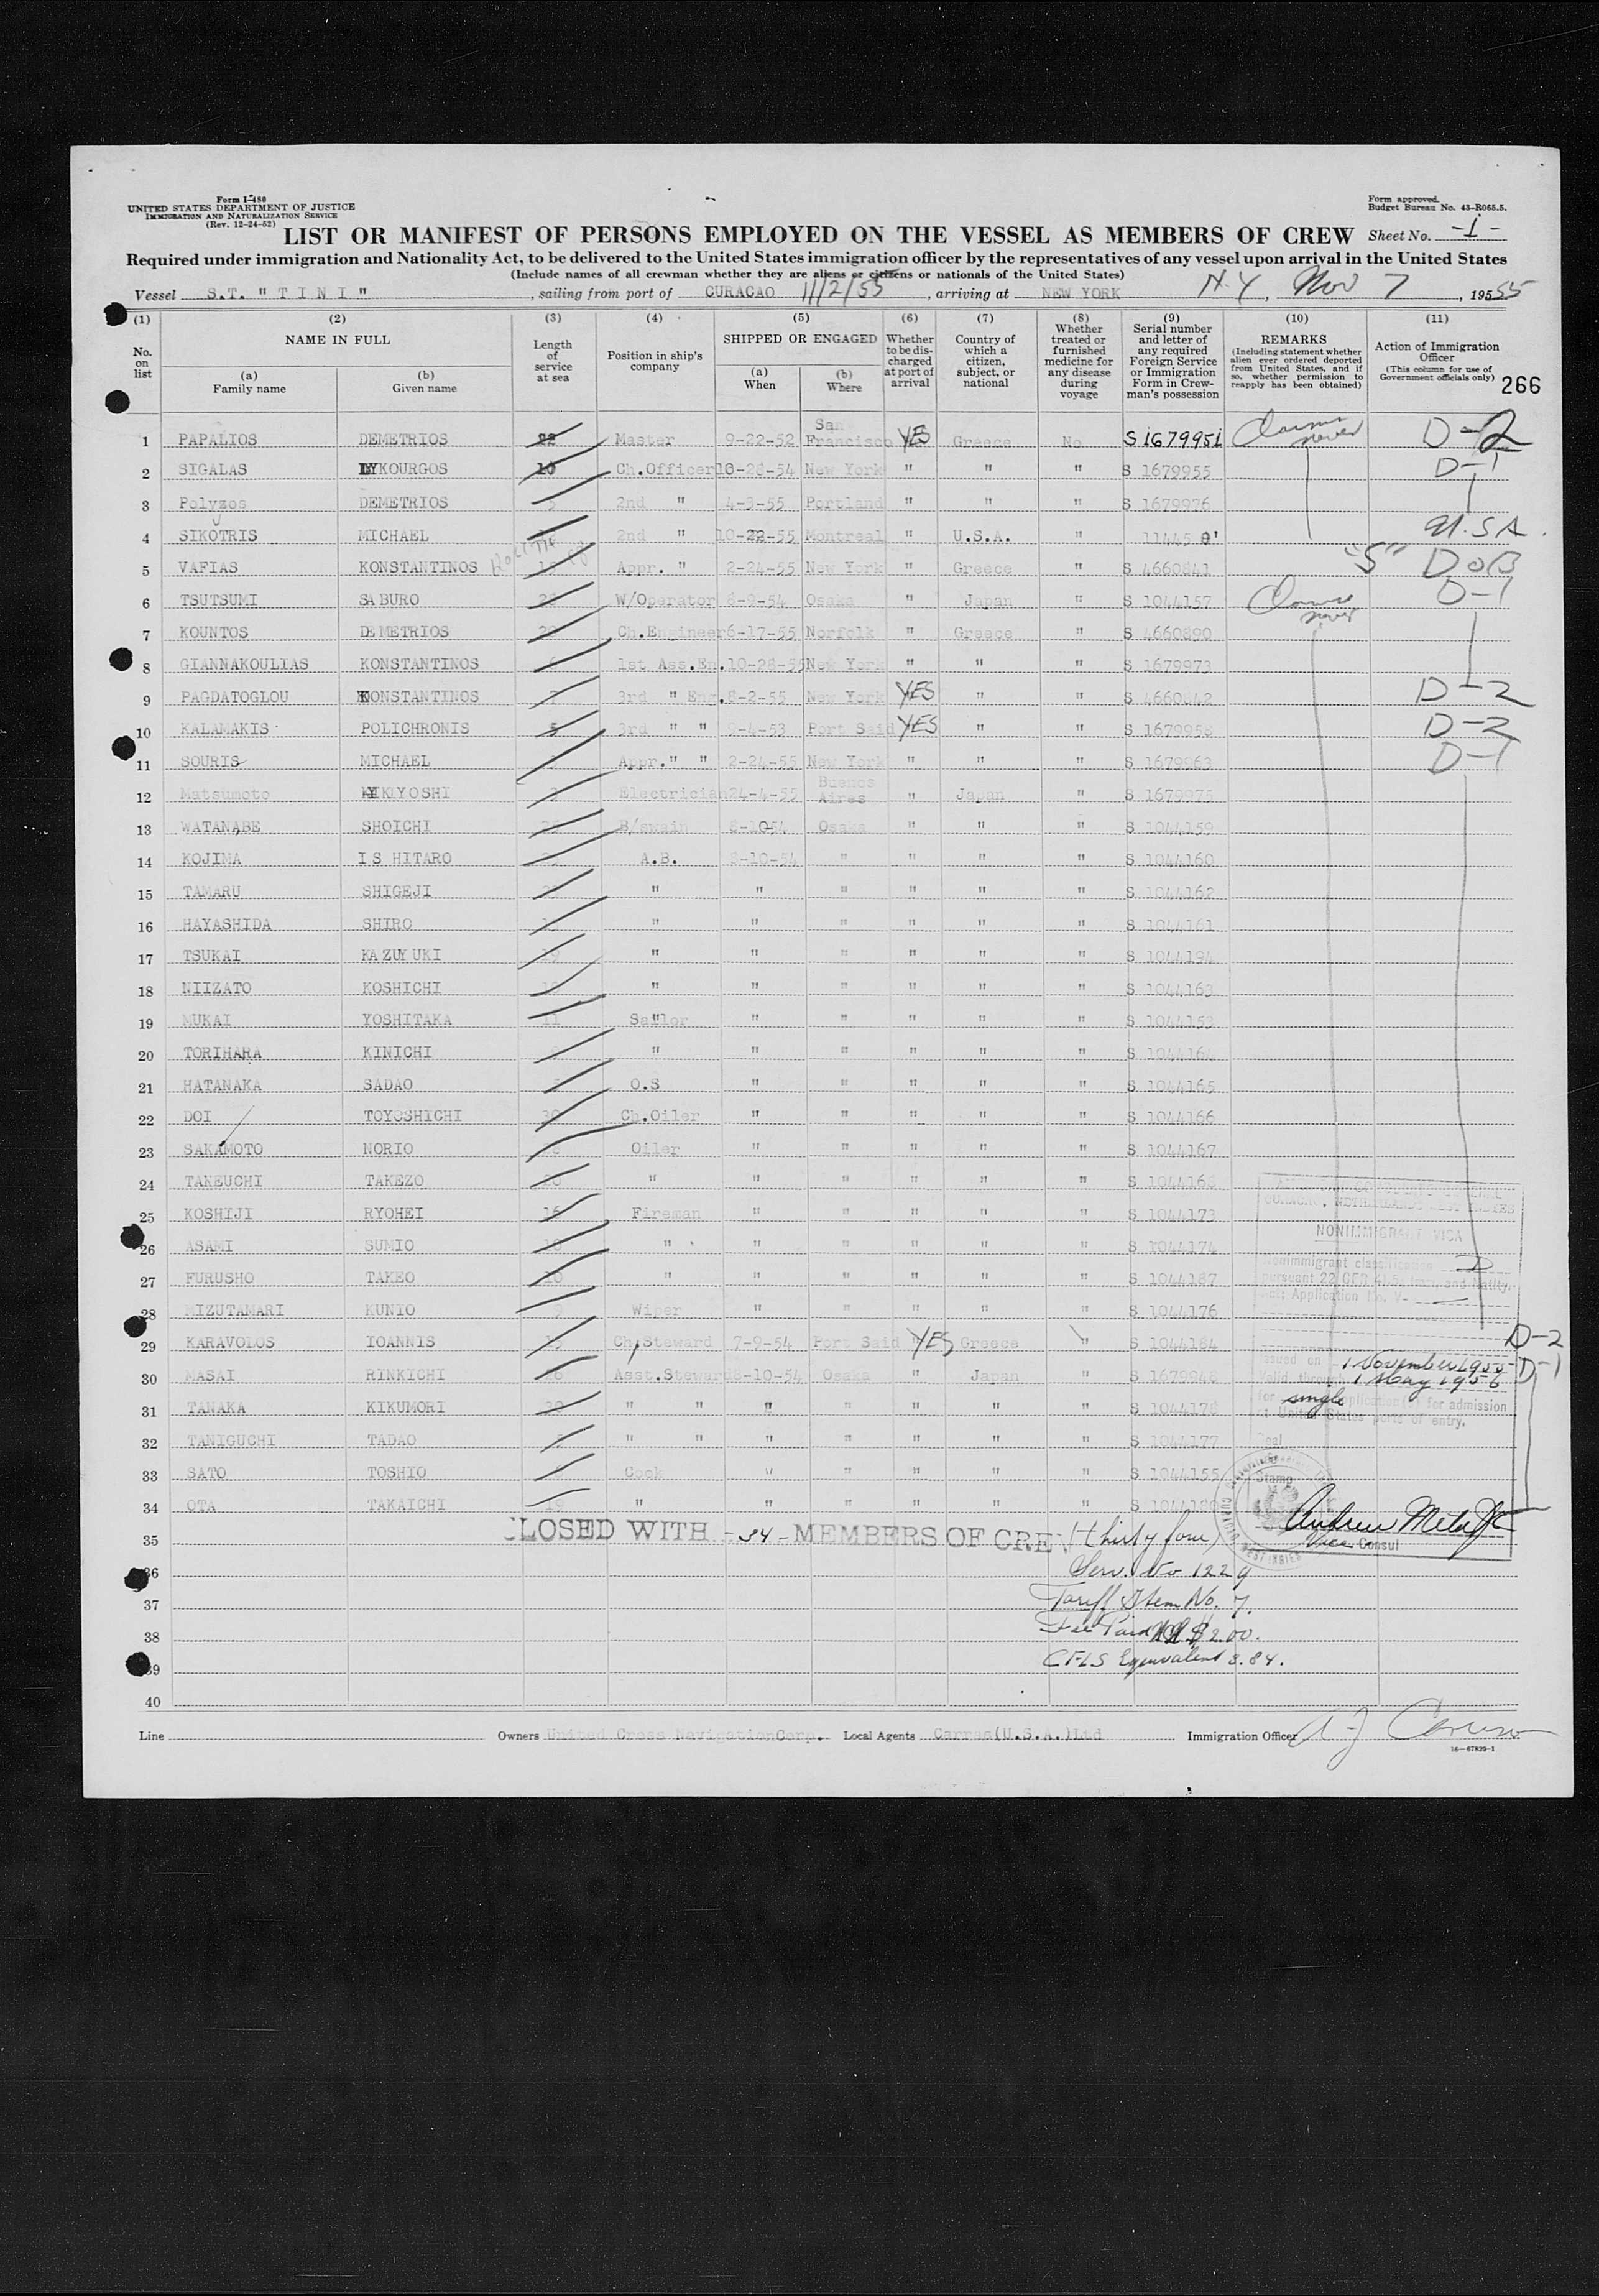 Form I-480
UNITED STATES DEPARTMENT OF JUSTICE
IMMIGRATION AND NATURALIZATION SERVICE
(Rev. 12-24-52)
Form approved.
Budget Bureau No. 43-R065.5.
LIST OR MANIFEST OF PERSONS EMPLOYED ON THE VESSEL AS MEMBERS OF CREW Sheet No. -1-
Required under immigration and Nationality Act, to be delivered to the United States immigration officer by the representatives of any vessel upon arrival in the United States
(Include names of all crewman whether they are aliens or citizens or nationals of the United States)
Vessel S.T. "TINI", sailing from port of CURACAO 11/2/55, arriving at NEW YORK N.Y, Nov 7, 1955
(1) (2) (3) (4) (5) (6) (7) (8) (9) (10) (11)
No. on list
NAME IN FULL
(a) Family name
(b) Given name
Length of service at sea
Position in ship's company
SHIPPED OR ENGAGED
(a) When
(b) Where
Whether to be discharged at port of arrival
Country of which a citizen, subject, or national
Whether treated or furnished medicine for any disease during voyage
Serial number and letter of any required Foreign Service or Immigration Form in Crewman's possession
REMARKS
(Including statement whether alien ever ordered deported from United States, and if so, whether permission to reapply has been obtained)
Action of Immigration Officer
(This column for use of Government officials only)
266
1 PAPALIOS DEMETRIOS 22 Master 9-22-52 San Francisco YES Greece No S 1679951 Claims never D-2
2 SIGALAS LYKOURGOS 10 Ch.Officer 10-28-54 New York " " " S 1679955 D-1
3 Polyzos DEMETRIOS 2nd " 4-3-55 Portland " " " S 1679976
4 SIKOTRIS MICHAEL 2nd " 10-22-55 Montreal " U.S.A. " U.S.A.
5 VAFIAS KONSTANTINOS Appr. " 2-24-55 New York " Greece " S 4660841 "S" D o B
6 TSUTSUMI SABURO W/Operator 8-9-54 Osaka " Japan " S 1044157 Claims never D-1
7 KOUNTOS DEMETRIOS Ch.Engineer 6-17-55 Norfolk " Greece " S 4660890
8 GIANNAKOULIAS KONSTANTINOS 1st Ass.En. 10-28-55 New York " " " S 1679973
9 PAGDATOGLOU KONSTANTINOS 3rd " Eng. 8-2-55 New York YES " " S 4660842 D-2
10 KALAMAKIS POLICHRONIS 5 3rd " " 9-4-53 Port Said YES " " S 1679958 D-2
11 SOURIS MICHAEL Appr. " " 2-24-55 New York " " " S 1679963 D-1
12 Matsumoto KIYOSHI Electrician 24-4-55 Buenos Aires " Japan " S 1679975
13 WATANABE SHOICHI B/swain 8-10-54 Osaka " " " S 1044159
14 KOJIMA ISHITARO A.B. 8-10-54 " " " " S 1044160
15 TAMARU SHIGEJI " " " " " " S 1044162
16 HAYASHIDA SHIRO " " " " " " S 1044161
17 TSUKAI KAZUYUKI " " " " " " S 1044194
18 NIIZATO KOSHICHI " " " " " " S 1044163
19 MUKAI YOSHITAKA 11 Sailor " " " " " S 1044153
20 TORIHARA KINICHI " " " " " " S 1044164
21 HATANAKA SADAO O.S " " " " " S 1044165
22 DOI TOYOSHICHI 30 Ch.Oiler " " " " " S 1044166
23 SAKAMOTO NORIO Oiler " " " " " S 1044167
24 TAKEUCHI TAKEZO " " " " " " S 1044168
25 KOSHIJI RYOHEI 16 Fireman " " " " " S 1044173
26 ASAMI SUMIO " " " " " " S 1044174
27 FURUSHO TAKEO " " " " " " S 1044187
28 MIZUTAMARI KUNIO Wiper " " " " " S 1044176
29 KARAVOLOS IOANNIS Ch.Steward 7-9-54 Port Said YES Greece " S 1044184 D-2
30 MASAI RINKICHI Asst.Steward 8-10-54 Osaka " Japan " D-1
31 TANAKA KIKUMORI " " " " " " " S 1044178
32 TANIGUCHI TADAO " " " " " " " S 1044177
33 SATO TOSHIO Cook " " " " " S 1044155
34 OTA TAKAICHI 19 " " " " " "
35 CLOSED WITH -34- MEMBERS OF CREW (thirty four)
36 Serv. No 1229
37 Tariff Item No. 7.
38 Fee Paid $2.00.
39 Equivalent 3.84.
40
NONIMMIGRANT VISA
Nonimmigrant classification D
pursuant 22 CFR
Issued on 1 November 1955
Valid through 1 May 1956
for single application for admission
at United States ports of entry.
Seal
Stamp
Vice Consul
Line Owners United Cross Navigation Corp. Local Agents Carras (U.S.A.) Ltd Immigration Officer
16-67829-1